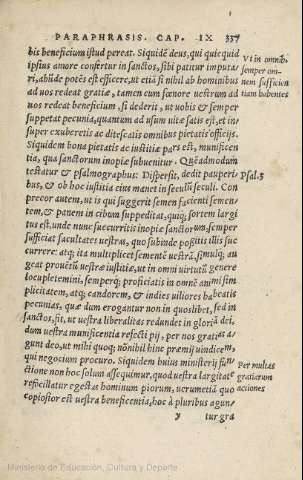 PARAPHRASIS. CAP. IX 337
bis beneficium istud pereat. Siquidē deus, qui quicquid
ipsius amore confertur in sanctos, sibi patitur imputa=
ri, abūde potēs est efficere, ut etiā si nihil ab hominibus
ad uos redeat gratiæ, tamen cum fœnore uestrum ad
uos redeat beneficium, si dederit, ut uobis & semper
suppetat pecunia, quantum ad usum uitæ satis est, et in=
super exuberetis ac ditescatis omnibus pietatis officijs.
Siquidem bona pietatis ac iustitiæ pars est, munificen
tia, qua sanctorum inopiæ subuenitur. Quēadmodum
testatur & psalmographus: Dispersit, dedit pauperi
bus, & ob hoc iustitia eius manet in seculū seculi. Con
precor autem, ut is qui suggerit semen facienti semen=
tem, & panem in cibum suppeditat, quiq; sortem largi
tus est, unde nunc succurritis inopiæ sanctorum semper
sufficiat facultates uestras, quo subinde possitis illis suc
currere: atq; ita multiplicet sementē uestrā, simulq; au
geat prouētū uestræ iustitiæ, ut in omni uirtutū genere
locupletemini, semperq; proficiatis in omnē animi sim
plicitatem, atq; candorem, & indies uiliores habeatis
pecunias, quæ dum erogantur non in quoslibet, sed in
sanctos, fit, ut uestra liberalitas redundet in gloriā dei,
dum uestra munificentia refecti pij, per nos gratias a=
gunt deo, ut mihi quoq; nōnihil hinc præmij uindicem,
qui negocium procuro. Siquidem huius ministerij fun=
ctione non hoc solum assequimur, quod uestra largitate
refocillatur egestas hominum piorum, uerumetiā quo
copiosior est uestra beneficentia, hoc à pluribus agun=
y tur gra
Vt in omnib.
semper om=
nem sufficien
tiam habentes
Psal.
Per multas
gratiarum
actiones
Ministerio de Educación, Cultura y Deporte